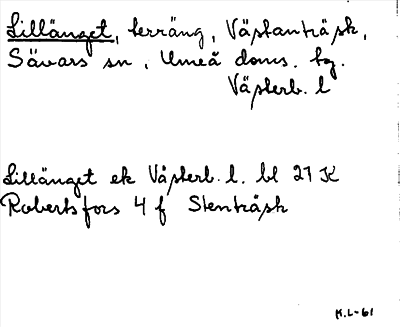 Lillänget, terräng, Västanträsk,
Sävars sn, Umeå doms. tg.
Västerb. l
Lillänget ek Västerb. l. bl 21 K
Robertsfors 4 f Stenträsk
K.L-61